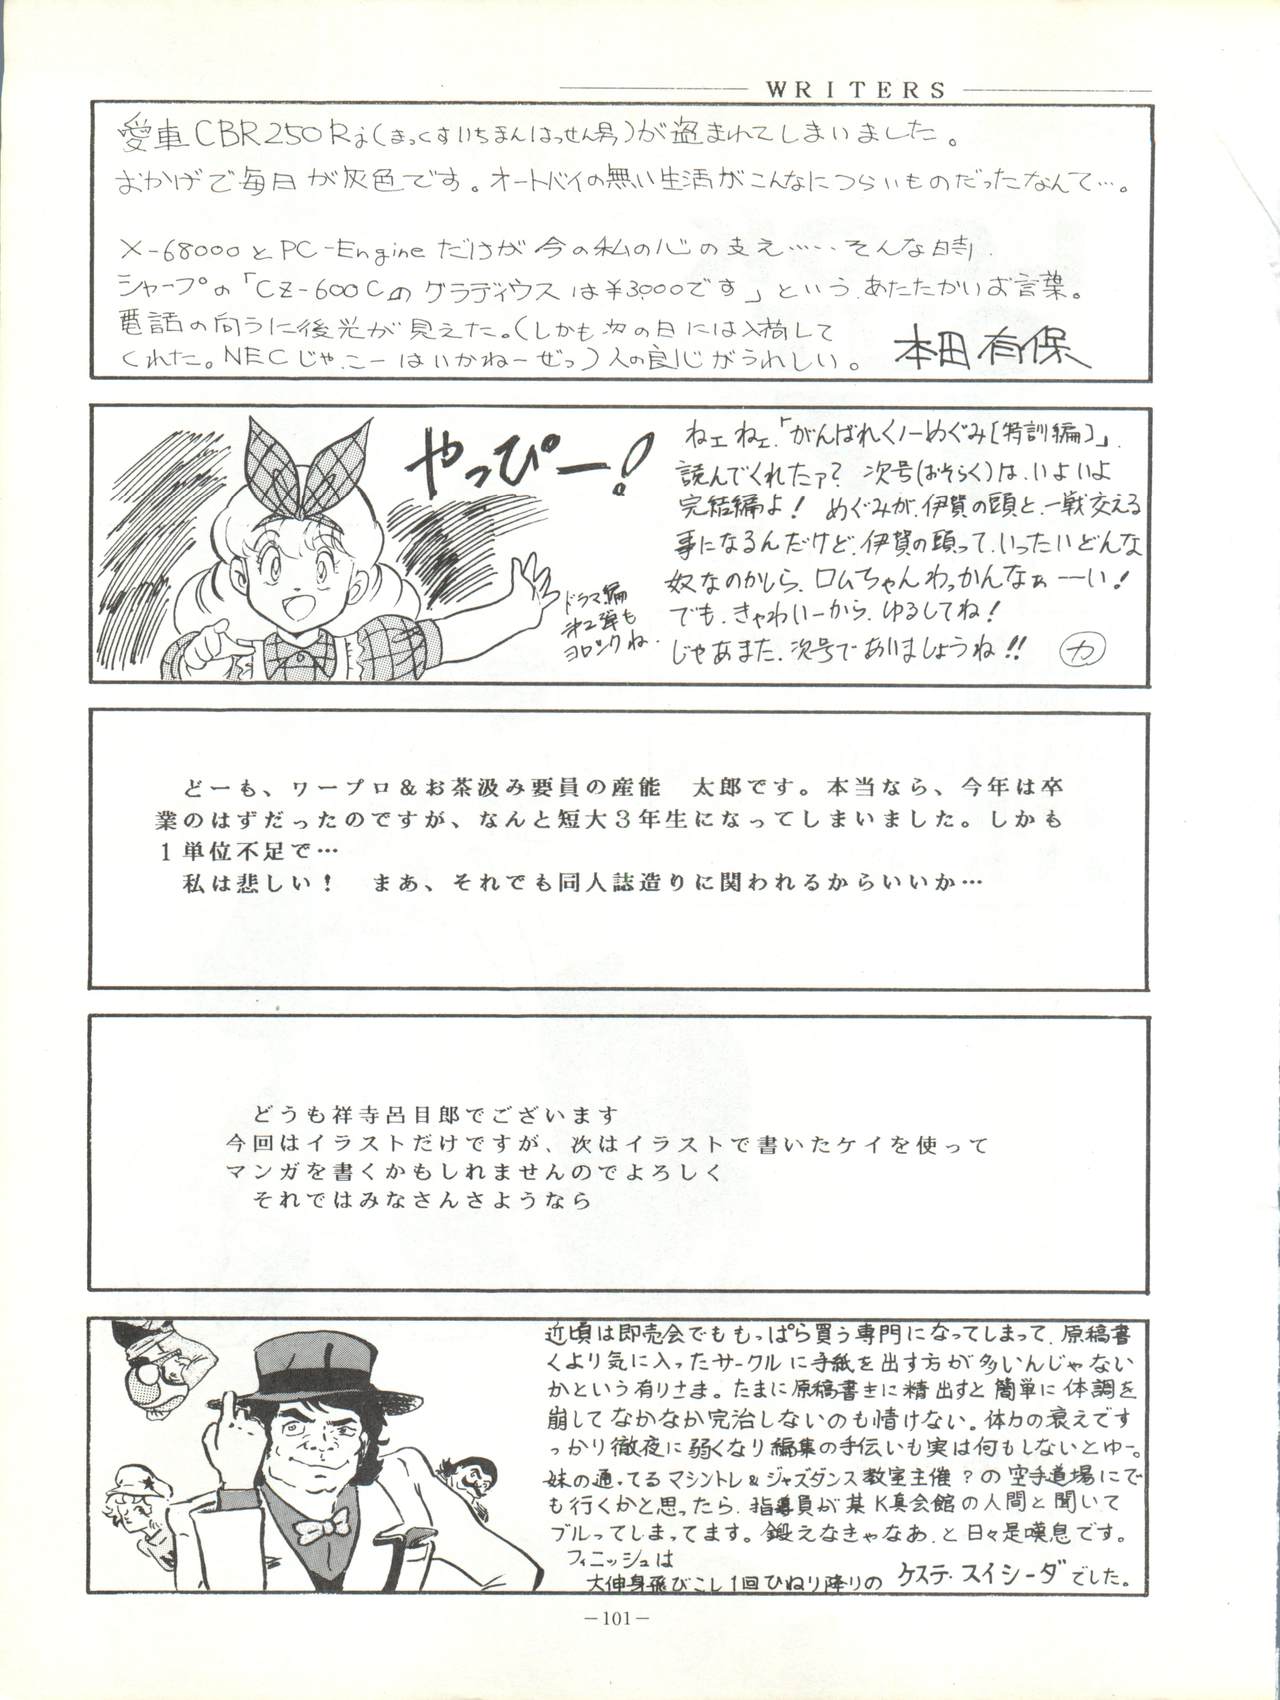 WRITERS
愛車CBR250Rj(まっくすいちまんはっせん号)が盗まれてしまいました。
おかげで毎日が灰色です。オートバイの無い生活がこんなにつらいものだったなんて…。
X-68000とPC-Engineだけが今の私の心の支え……そんな時、
シャープの「CZ-600Cのグラディウスは¥3,000です」という、あたたかいお言葉。
電話の向うに後光が見えた。(しかも次の日には入荷して
くれた。NECじゃ、こーはいかねーぜっ)人の良心がうれしい。
本田有保
やっぴー!
ドラマ編
第2弾も
ヨロシクね.
ねェねェ、「がんばれくノ一めぐみ[特訓編]」、
読んでくれたァ? 次号(おそらく)は、いよいよ
完結編よ! めぐみが、伊賀の頭と、一戦交える
事になるんだけど、伊賀の頭って、いったいどんな
奴なのかしら、ロムちゃんわっかんなぁーーい!
でも、きゃわいーから、ゆるしてね!
じゃあまた、次号でありましょうね!! カ
どーも、ワープロ&お茶汲み要員の産能 太郎です。本当なら、今年は卒
業のはずだったのですが、なんと短大3年生になってしまいました。しかも
1単位不足で…
私は悲しい! まあ、それでも同人誌造りに関われるからいいか…
どうも祥寺呂目郎でございます
今回はイラストだけですが、次はイラストで書いたケイを使って
マンガを書くかもしれませんのでよろしく
それではみなさんさようなら
近頃は即売会でももっぱら買う専門になってしまって、原稿書
くより気に入ったサークルに手紙を出す方が多いんじゃない
かという有りさま。たまに原稿書きに精出すと簡単に体調を
崩してなかなか完治しないのも情けない。体力の衰えです
っかり徹夜に弱くなり編集の手伝いも実は何もしないとゆー。
妹の通ってるマシントレ&ジャズダンス教室主催?の空手道場にで
も行くかと思ったら、指導員が某K真会館の人間と聞いて
ブルってしまってます。鍛えなきゃなあ、と日々是嘆息です。
フィニッシュは
大伸身飛びこし1回ひねり降りのケステ・スイシーダでした。
—101—